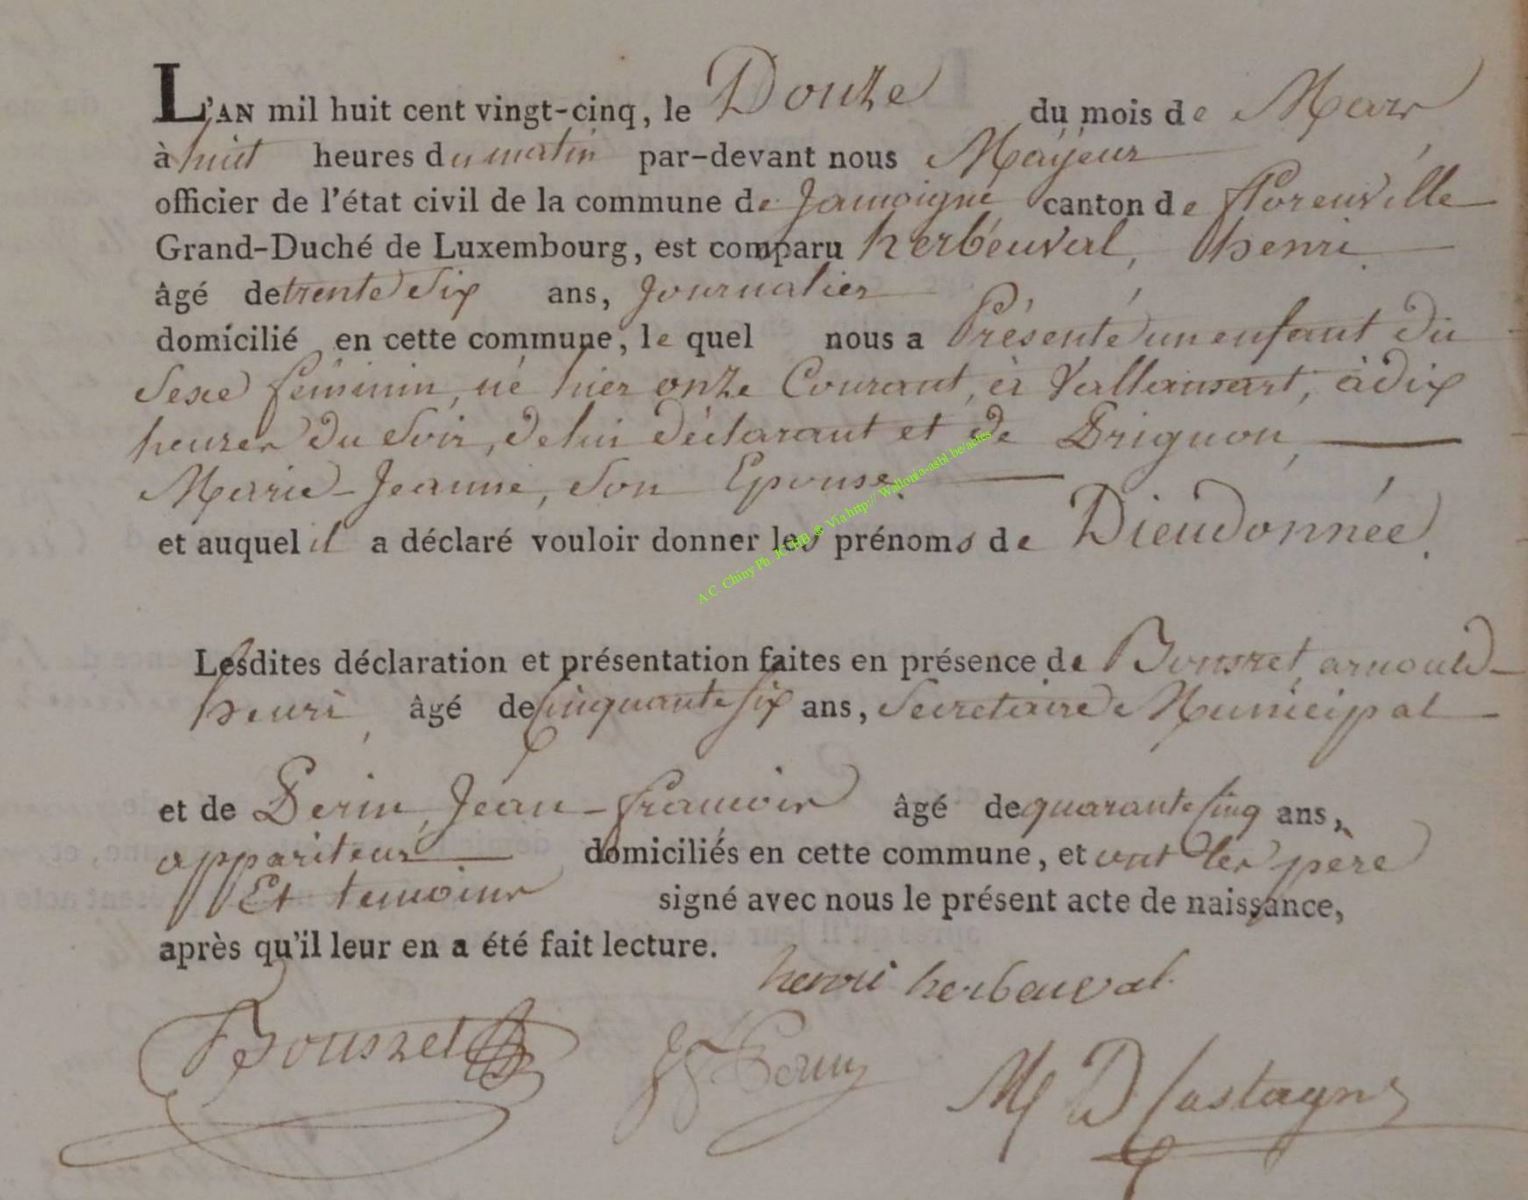 L'AN mil huit cent vingt-cinq, le Douze du mois de Mars
à huit heures du matin par-devant nous Mayeur
officier de l'état civil de la commune de Jamoigne canton de florenville
Grand-Duché de Luxembourg, est comparu herbeuval, henri
âgé de trente Six ans, Journalier
domicilié en cette commune, le quel nous a Présenté un enfant du
Sexe féminin, né hier onze Courant, à Vallansart, à dix
heures du Soir, de lui déclarant et de Prignon,
Marie-Jeanne, Son Epouse.
et auquel il a déclaré vouloir donner les prénoms de Dieudonnée.
A.C Chiny Ph. JCHHB ® Via http://Wallonia-asbl.be/actes
Lesdites déclaration et présentation faites en présence de Bouszet, arnould-
henri, âgé de Cinquante Six ans, Secretaire Municipal
et de Perin, Jean-françois âgé de quarante Cinq ans,
appariteur domiciliés en cette commune, et ont les père
Et temoins signé avec nous le présent acte de naissance,
après qu'il leur en a été fait lecture.
henri herbeuval
Bouszet Perin M D Castagne